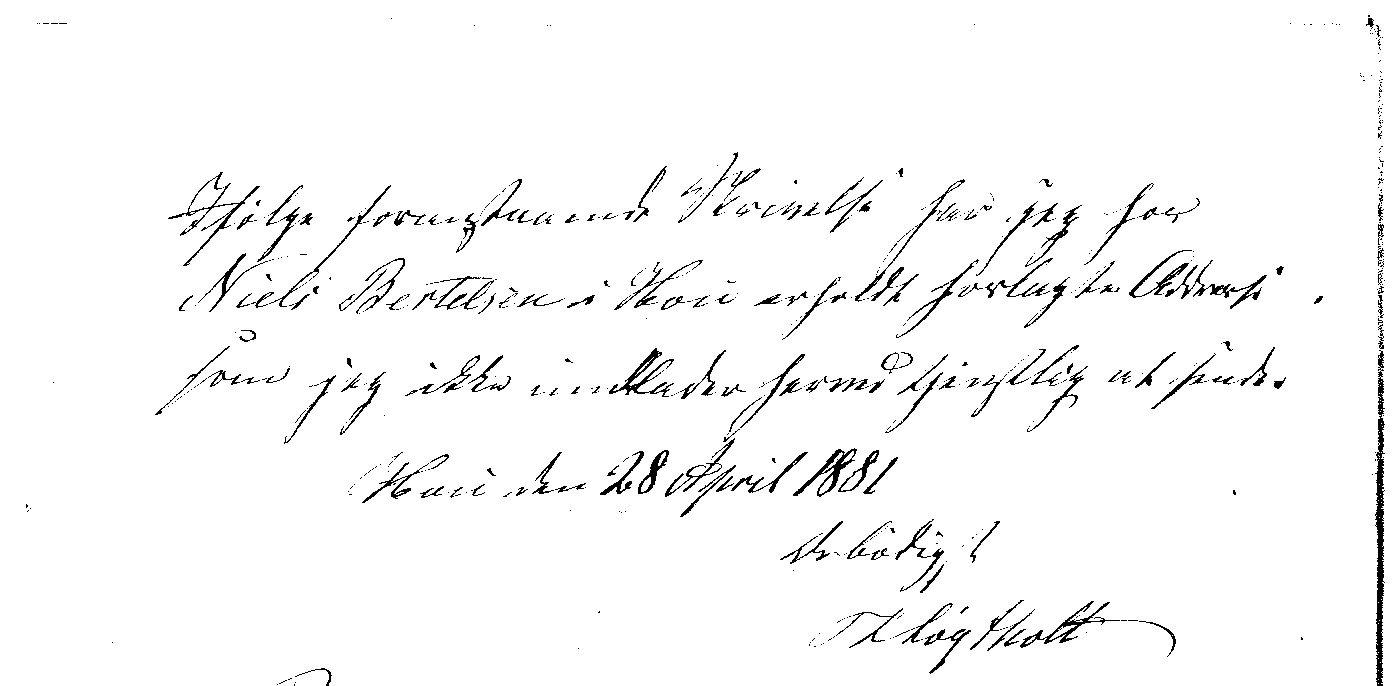 Ifølge foranstaaende Skrivelse har jeg hos
Niels Bertelsen i Hou erholdt forlagte Addresse
som jeg ikke undlader herved tjenstlig at sende.
Hou den 28 April 1881
Ærbødigst